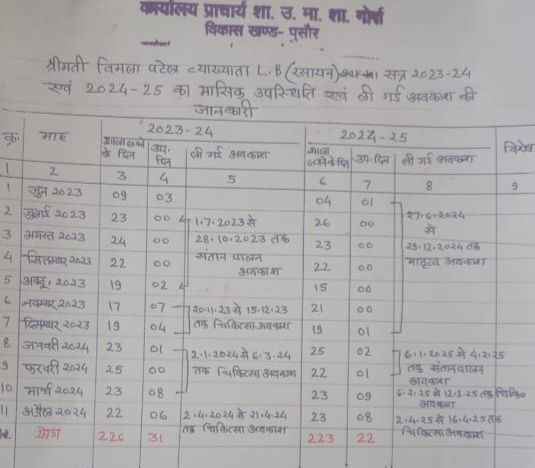 कार्यालय प्राचार्य शा. उ. मा. शा. गोर्रा
विकास खण्ड- पुसौर
श्रीमती विमला पटेल व्याख्याता L.B (रसायन) सत्र 2023-24
एवं 2024-25 का मासिक उपस्थिति एवं ली गई अवकाश की
जानकारी
क्र. माह 2023-24 2024-25 विशेष
शाला लगने के दिन उप. दिन ली गई अवकाश शाला लगने के दिन उप. दिन ली गई अवकाश
1 2 3 4 5 6 7 8 9
1 जून 2023 09 03 04 01
2 जुलाई 2023 23 00 1.7.2023 से 26 00 27.6.2024
3 अगस्त 2023 24 00 28.10.2023 तक 23 00 से
4 सितम्बर 2023 22 00 संतान पालन 22 00 23.12.2024 तक
5 अक्टू. 2023 19 02 अवकाश 15 00 मातृत्व अवकाश
6 नवम्बर 2023 17 07 20.11.23 से 15.12.23 21 00
7 दिसम्बर 2023 19 04 तक चिकित्सा अवकाश 19 01
8 जनवरी 2024 23 01 2.1.2024 से 6.3.24 25 02 6.1.2025 से 4.2.25
9 फरवरी 2024 25 00 तक चिकित्सा अवकाश 22 01 तक संतान पालन अवकाश
10 मार्च 2024 23 08 23 09 6.2.25 से 12.3.25 तक अवकाश
11 अप्रैल 2024 22 06 2.4.2024 से 21.4.24 23 08 2.4.25 से 16.4.25 तक
योग 226 31 तक चिकित्सा अवकाश 223 22 चिकित्सा अवकाश